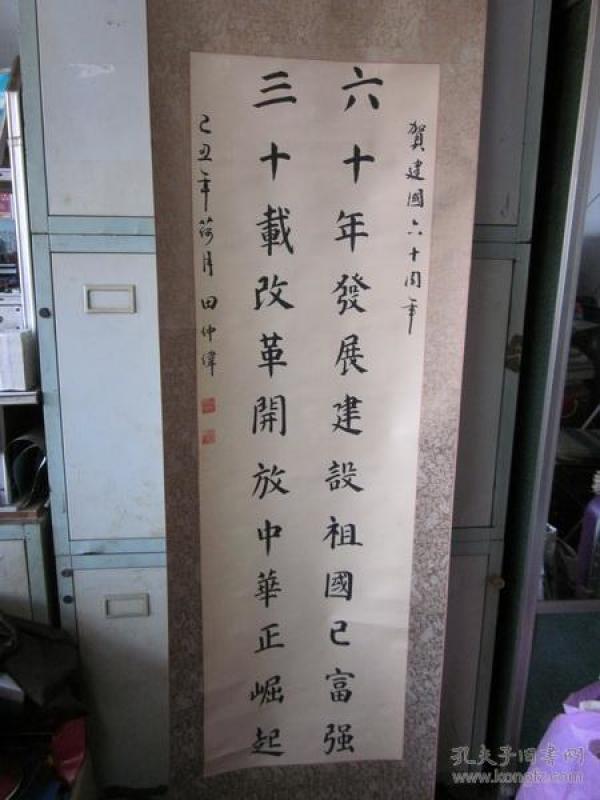 賀建國六十周年
六十年發展建設祖國已富强
三十載改革開放中華正崛起
己丑年荷月 田仲緯
孔夫子旧书网
www.kongfz.com